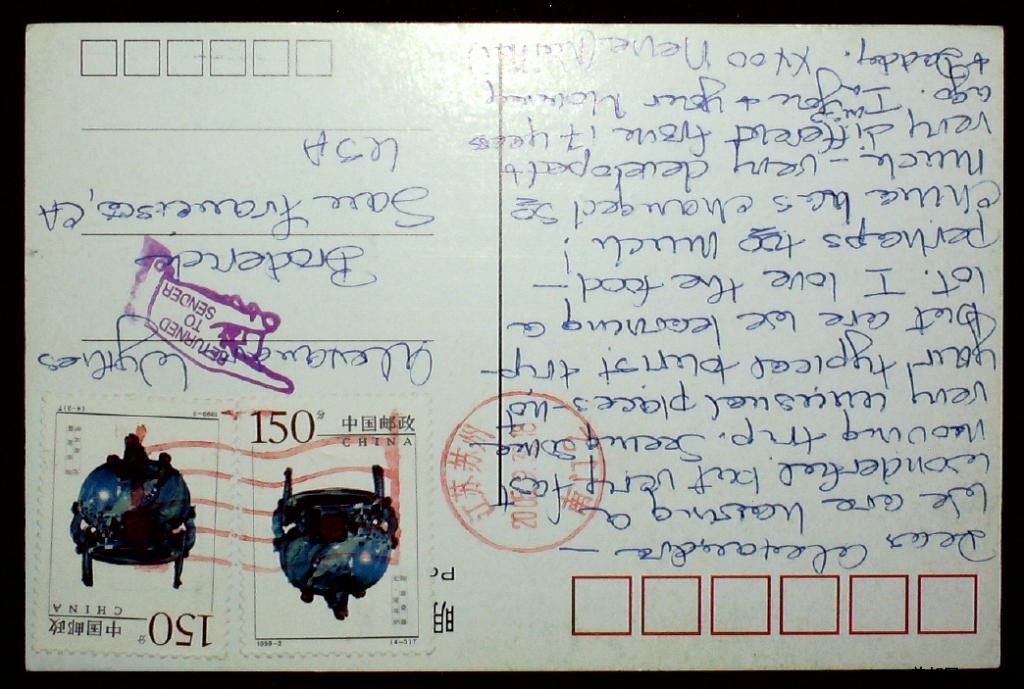 Dear Alexandra —
We are having a
wonderful but very fast
moving trip. Seeing some
very unusual places - not
your typical tourist trip -
but are we learning a
lot. I love the food —
perhaps too much!
China has changed so
much - very developed &
very different from 17 years
ago. I miss you & your Mommy
& Daddy. XXOO
Alexandra Wythes
Broderick
San Francisco, CA
USA
RETURNED
TO
SENDER
150分
中国邮政
CHINA
1999-3
(4-2)T
150分
中国邮政
CHINA
1999-3
(4-3)T
江苏苏州
明
Po